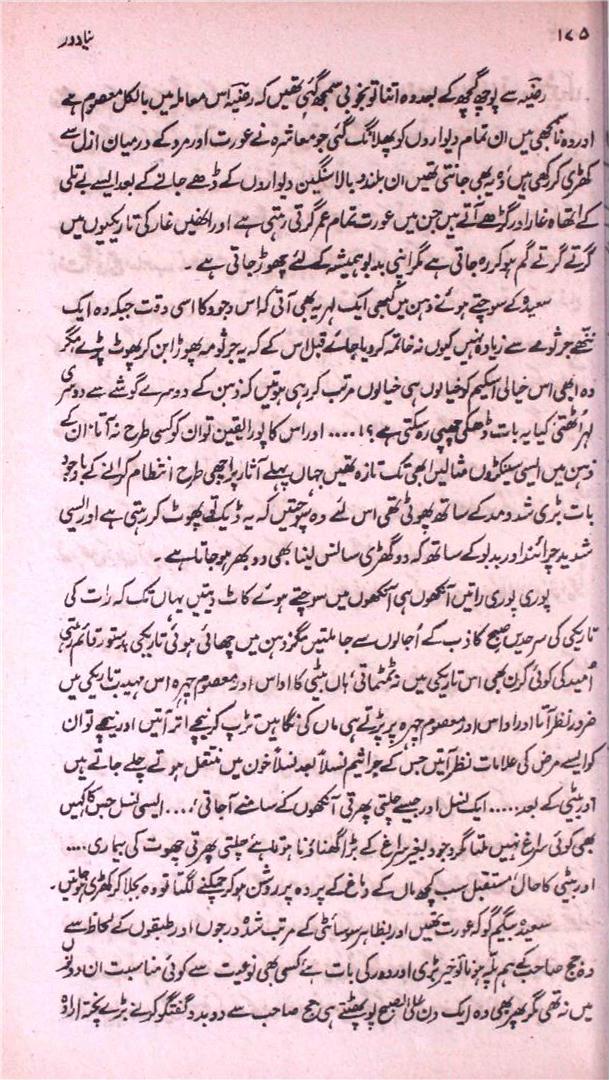 ۱۷۵ نیا دور
رضیہ سے پوچھ گچھ کے بعد وہ اتنا تو بخوبی سمجھ گئی تھیں کہ رضیہ اس معاملہ میں بالکل معصوم ہے
اور وہ ناسمجھی میں ان تمام دیواروں کو پھلانگ گئی جو معاشرہ نے عورت اور مرد کے درمیان ازل سے
کھڑی کر رکھی ہیں؛ وہ یہ بھی جانتی تھیں ان بلند و بالا سنگین دیواروں کے ڈھے جانے کے بعد ایسے بے تلی
کے اتھاہ غار اور گڑھے آتے ہیں جن میں عورت تمام عمر گرتی رہتی ہے اور انھیں غار کی تاریکیوں میں
گرتے گرتے گم ہو کر رہ جاتی ہے مگر اپنی بدبو ہمیشہ کے لئے چھوڑ جاتی ہے ۔
سعیدہ کے سوچتے ہوئے ذہن میں کبھی ایک لہر یہ بھی آتی کہ اس وجود کا اسی وقت جبکہ وہ ایک
ننھے جرثومے سے زیادہ نہیں کیوں نہ خاتمہ کر دیا جائے قبل اس کے کہ یہ جرثومہ پھوڑا بن کر پھوٹ پڑے مگر
وہ ابھی اس خیالی اسکیم کو خیالوں ہی خیالوں مرتب کر رہی ہوتیں کہ ذہن کے دوسرے گوشے سے دوسری
لہر اُٹھتی کیا یہ بات ڈھکی چھپی رہ سکتی ہے؟! ..... اور اس کا پورا یقین تو ان کو کسی طرح نہ آتا: ان کے
ذہن میں ایسی سینکڑوں مثالیں ابھی تک تازہ تھیں جہاں پہلے آثار پر اچھی طرح انتظام کرانے کے باوجود
بات بڑی شد و مد کے ساتھ پھوٹی تھی اس لئے وہ سوچتیں کہ یہ ڈیکتی پھوٹ کر رہتی ہے اور ایسی
شدید چرائند اور بدبو کے ساتھ کہ دو گھڑی سانس لینا بھی دوبھر ہو جاتا ہے ۔
پوری پوری راتیں آنکھوں ہی آنکھوں میں سوچتے ہوئے کاٹ دیتیں یہاں تک کہ رات کی
تاریکی کی سرحدیں صبح کاذب کے اُجالوں سے جا ملتیں مگر ذہن میں چھائی ہوئی تاریکی بدستور قائم رہتی
اُمید کی کوئی کرن بھی اس تاریکی میں نہ ٹمٹماتی؛ ہاں بیٹی کا اداس اور معصوم چہرہ اس مہیب تاریکی میں
ضرور نظر آتا اور اداس اور معصوم چہرہ پر پڑتے ہی ماں کی نگاہیں تڑپ کر نیچے اتر آتیں اور نیچے تو ان
کو ایسے مرض کی علامات نظر آتیں جس کے جراثیم نسلاً بعد نسلاً خون میں منتقل ہوتے چلے جاتے ہیں
اور بیٹی کے بعد ..... ایک نسل اور جیسے چلتی پھرتی آنکھوں کے سامنے آ جاتی! .... ایسی نسل جس کا کہیں
بھی کوئی سراغ نہیں ملتا مگر وجود بغیر سراغ کے بڑا گھناؤنا ہوتا ہے چلتی پھرتی چھوت کی بیماری ....
اور بیٹی کا حال مستقبل سب کچھ ماں کے دماغ کے پردہ پر روشن ہو کر چمکنے لگتا تو وہ بجلا کر کھڑی ہو جاتیں ۔
سعیدہ بیگم گو کہ عورت تھیں اور بظاہر سوسائٹی کے مرتب شدہ درجوں اور طبقوں کے لحاظ سے
وہ جج صاحب کے ہم پلّہ ہونا تو خیر بڑی اور دور کی بات ہے کسی بھی نوعیت سے کوئی مناسبت ان دونوں
میں نہ تھی مگر پھر بھی وہ ایک دن علی الصبح پو پھٹتے ہی جج صاحب سے دو بدو گفتگو کرنے بڑے پختہ ارادہ